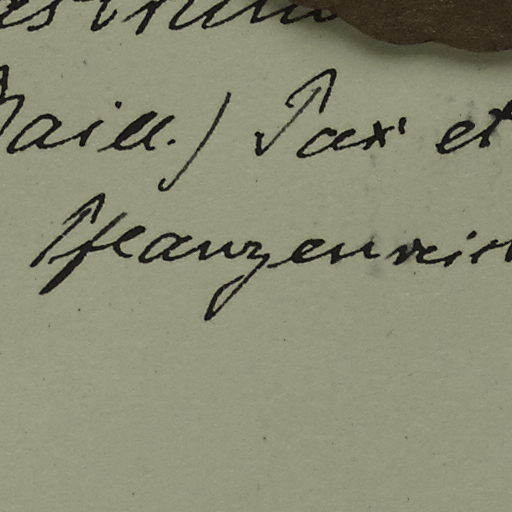 Baill.) Pax et
Pflanzenreich